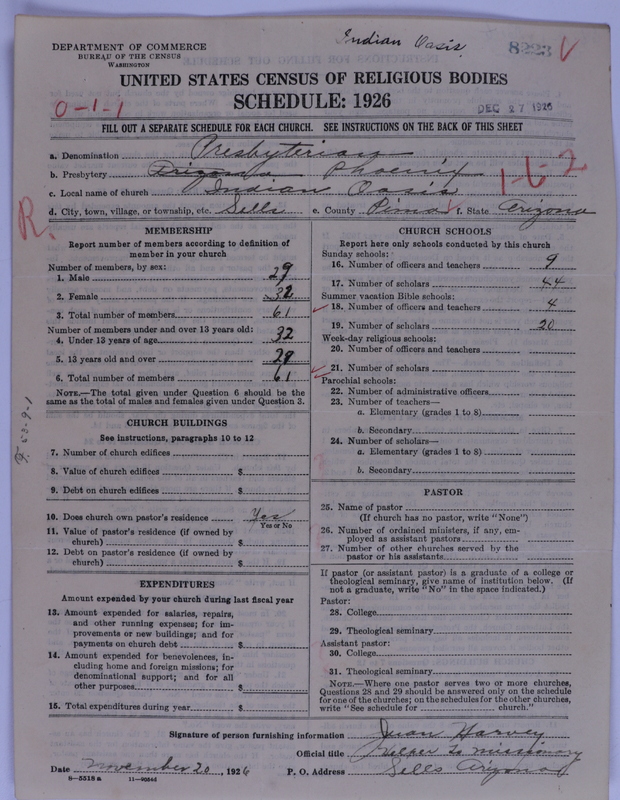 Indian Oasis
8223
DEPARTMENT OF COMMERCE
BUREAU OF THE CENSUS
WASHINGTON
UNITED STATES CENSUS OF RELIGIOUS BODIES
SCHEDULE: 1926
0-1-1
DEC 27 1926
FILL OUT A SEPARATE SCHEDULE FOR EACH CHURCH. SEE INSTRUCTIONS ON THE BACK OF THIS SHEET
a. Denomination Presbyterian
b. Presbytery Arizona Phoenix
c. Local name of church Indian Oasis
d. City, town, village, or township, etc. Sells e. County Pima f. State Arizona
R.
MEMBERSHIP
Report number of members according to definition of
member in your church
Number of members, by sex:
1. Male 29
2. Female 32
3. Total number of members 61
Number of members under and over 13 years old:
4. Under 13 years of age 32
5. 13 years old and over 29
6. Total number of members 61
NOTE.—The total given under Question 6 should be the
same as the total of males and females given under Question 3.
CHURCH BUILDINGS
See instructions, paragraphs 10 to 12
7. Number of church edifices
8. Value of church edifices $
9. Debt on church edifices $
10. Does church own pastor's residence Yes
Yes or No
11. Value of pastor's residence (if owned by
church) $
12. Debt on pastor's residence (if owned by
church) $
EXPENDITURES
Amount expended by your church during last fiscal year
13. Amount expended for salaries, repairs,
and other running expenses; for im-
provements or new buildings; and for
payments on church debt $
14. Amount expended for benevolences, in-
cluding home and foreign missions; for
denominational support; and for all
other purposes $
15. Total expenditures during year $
CHURCH SCHOOLS
Report here only schools conducted by this church
Sunday schools:
16. Number of officers and teachers 9
17. Number of scholars 44
Summer vacation Bible schools:
18. Number of officers and teachers 4
19. Number of scholars 20
Week-day religious schools:
20. Number of officers and teachers
21. Number of scholars
Parochial schools:
22. Number of administrative officers
23. Number of teachers—
a. Elementary (grades 1 to 8)
b. Secondary
24. Number of scholars—
a. Elementary (grades 1 to 8)
b. Secondary
PASTOR
25. Name of pastor
(If church has no pastor, write "None")
26. Number of ordained ministers, if any, em-
ployed as assistant pastors
27. Number of other churches served by the
pastor or his assistants
If pastor (or assistant pastor) is a graduate of a college or
theological seminary, give name of institution below. (If
not a graduate, write "No" in the space indicated.)
Pastor:
28. College
29. Theological seminary
Assistant pastor:
30. College
31. Theological seminary
NOTE.—Where one pastor serves two or more churches,
Questions 28 and 29 should be answered only on the schedule
for one of the churches; on the schedules for the other churches,
write "See schedule for church."
Signature of person furnishing information Juan Harvey
Official title Helper to missionary
Date November 20, 1926 P. O. Address Sells Arizona
8-5318 a